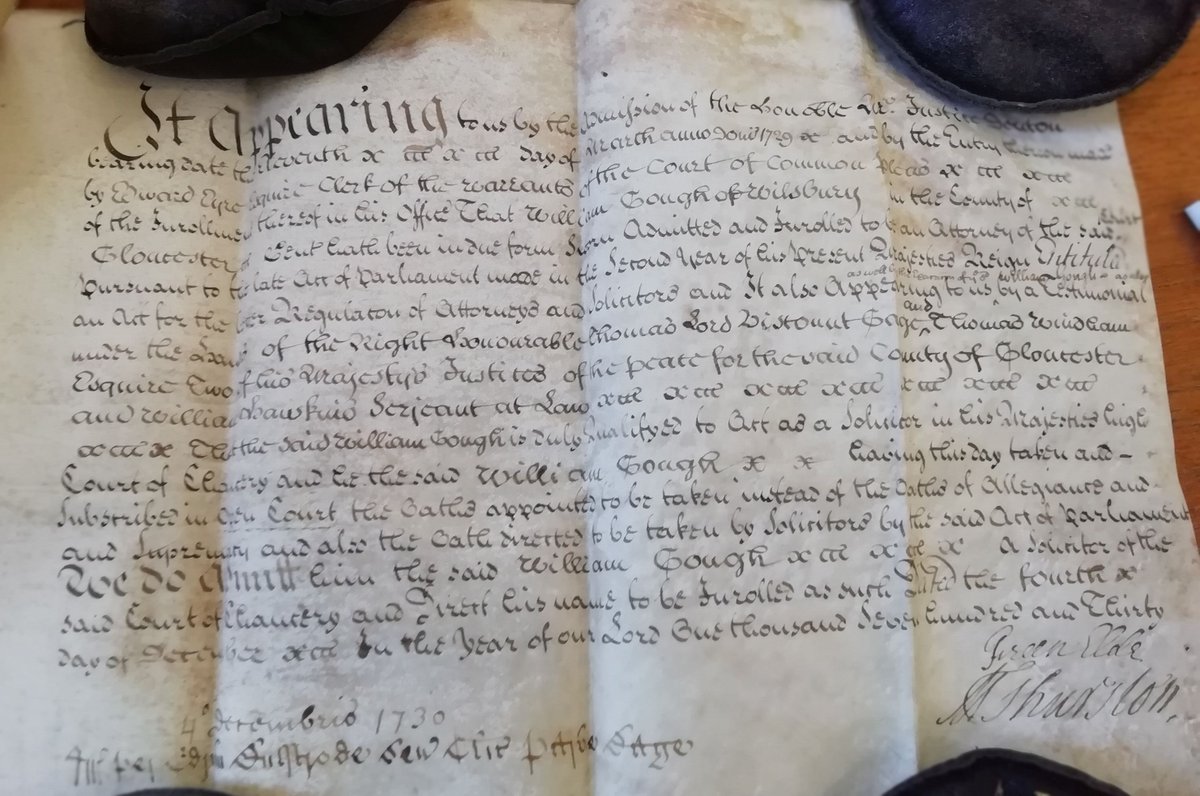 It Appearing to us by the Admission of the Honoble Mr. Justice Denton
bearing date the Eleventh day of March anno Dom 1729 and by the Entry thereon made
by Edward Eyre Esquire Clerk of the Warrants of the Court of Common Pleas
of the Inrollment thereof in his Office That William Gough of Wilsbury in the County of
Gloucester Gent hath been in due form Sworn Admitted and Inrolled to be an Attorney of the said Court
Pursuant to the late Act of Parliament made in the Second Year of his Present Majesties Reign Intitul'd
as well the
William Gough
an Act for the better Regulaton of Attorneys and Solicitors and It also Appearing to us by a Testimonial
and
under the Hands of the Right Honourable Thomas Lord Viscount Gage Thomas Windham
Esquire Two of his Majesty's Justices of the Peace for the said County of Gloucester
and William Hawkins Serjeant at Law
That the said William Gough is duly Qualifyed to Act as a Solicitor in his Majesties high
Court of Chancery and he the said William Gough having this day taken and
Subscribed in Open Court the Oaths appointed to be taken instead of the Oaths of Allegiance and
and Supremacy and also the Oath directed to be taken by Solicitors by the said Act of Parliament
We do Admitt him the said William Gough a Solicitor of the
said Court of Chancery and Direct his name to be Inrolled as such Dated the fourth
day of December In the Year of our Lord One thousand Seven hundred and Thirty
4o Decembris 1730